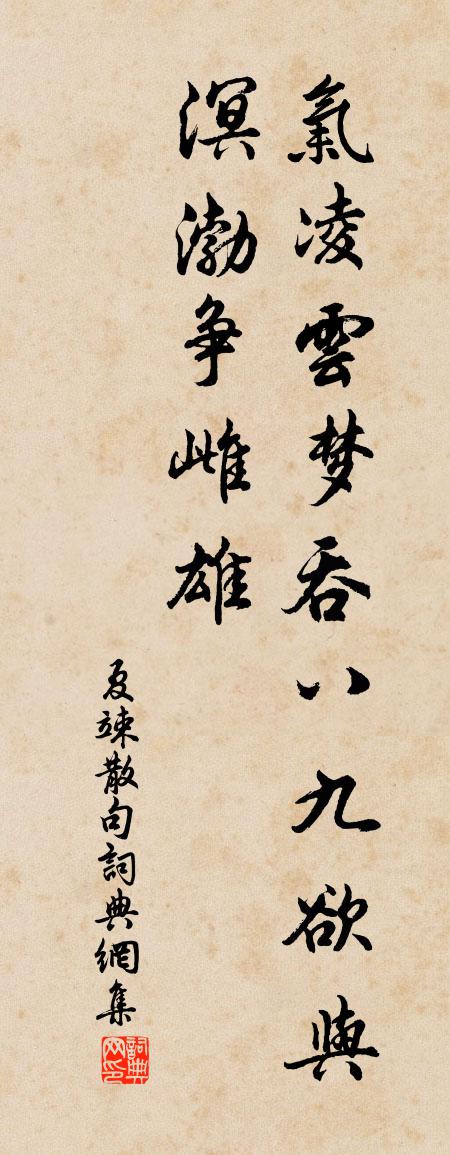 氣凌雲梦吞八九欲與
溟渤争雌雄
夏竦散句詞典網集
詞典网印